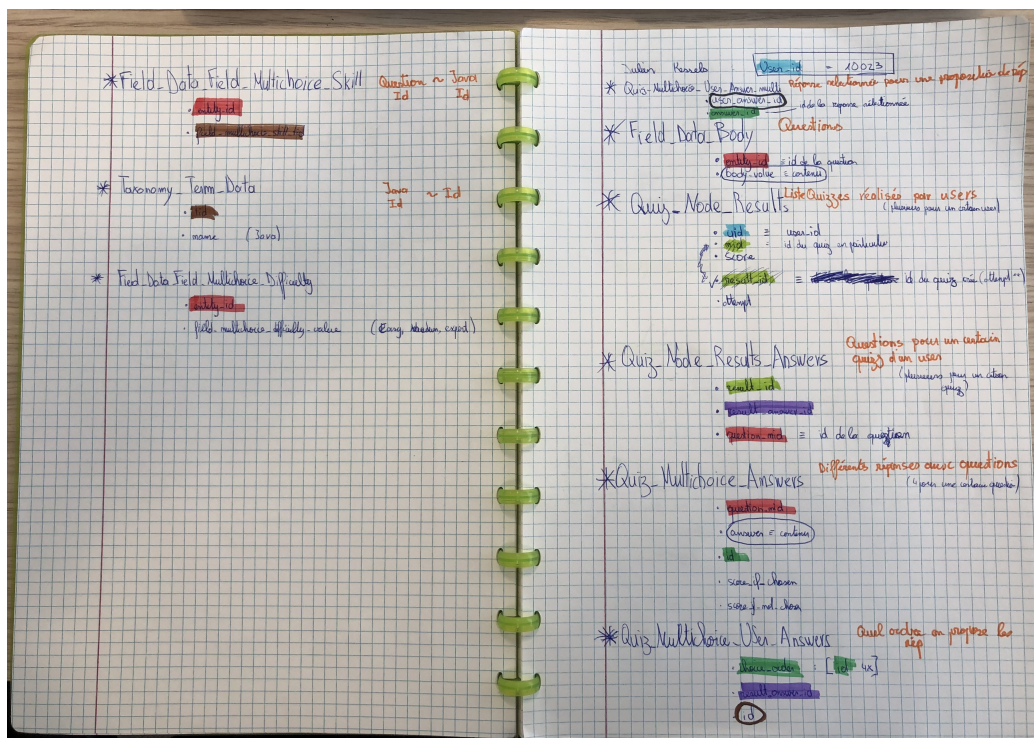 * Field_Data_Field_Multichoice_Skill
Question ~ Java
Id Id
• entity_id
* Taxonomy_Term_Data
Java ~ Id
Id
• tid
• name (Java)
* Field_Data_Field_Multichoice_Difficulty
• entity_id
• field_multichoice_difficulty_value (Easy, Medium,
User_id = 10023
* Quiz_Multichoice_User_Answer_multi
Réponse relationnée pour une proposition de rép
• user_answer_id
id de la réponse relationnée
• answer_id
* Field_Data_Body
Questions
• entity_id ≡ id de la question
• body_value ≡ contenu
* Quiz_Node_Results
Liste Quizzes réalisés par users
(plusieurs pour un certain user)
• uid ≡ user_id
• nid = id du quiz en particulier
• score
• result_id ≡ id du quiz
• attempt
* Quiz_Node_Results_Answers
Questions pour un certain
quizz d'un user
(plusieurs pour un certain
quiz)
• result_id
• result_answer_id
• question_nid ≡ id de la question
* Quiz_Multichoice_Answers
Différents réponses questions
(4 pour une certaine question)
• question_nid
• answer ≡ contenu
• id
• score_if_chosen
• score_if_not_chosen
* Quiz_Multichoice_User_Answers
Quel ordre on propose les
rép
• choice_order : [id 4x]
• result_answer_id
• id